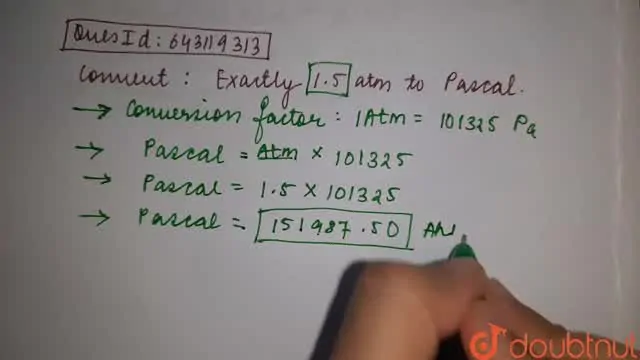 QuesId: 643119313
Convert : Exactly 1.5 atm to Pascal.
→ Conversion factor : 1Atm = 101325 Pa
→ Pascal = Atm × 101325
→ Pascal = 1.5 × 101325
→ Pascal = 151987.50 An
doubtnut